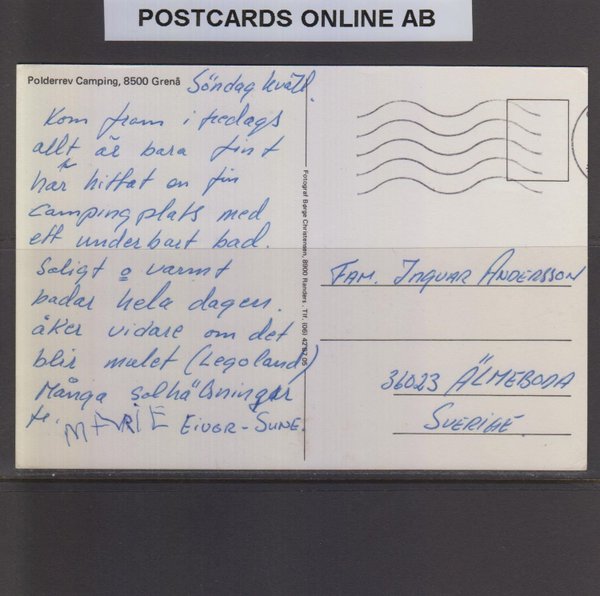 POSTCARDS ONLINE AB
Polderrev Camping, 8500 Grenå
Söndag kväll.
Kom fram i fredags
allt är bara fint
har hittat en fin
campingplats med
ett underbart bad.
Soligt o varmt
badar hela dagen.
åker vidare om det
blir mulet (Legoland)
Många solhälsningar
fr. MARIE EIVOR - SUNE.
Fotograf Børge Christensen, 8900 Randers . Tlf. (06) 42 87 06
FAM. INGVAR ANDERSSON
36023 ÄLMEBODA
SVERIGE.